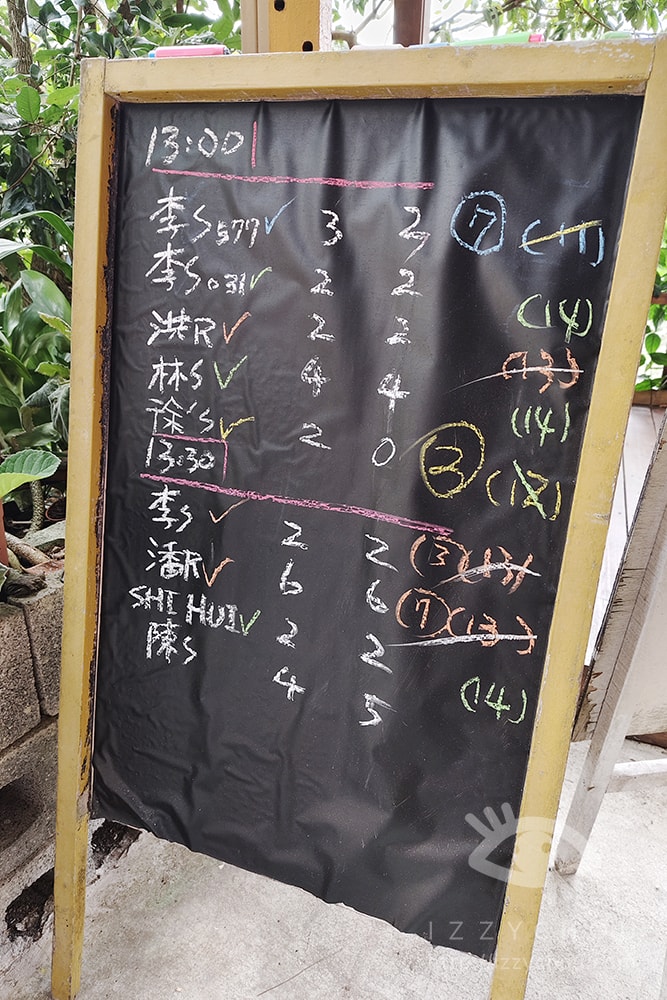 13:00
李S577✓ 3 2 ⑦ (11)
李S031✓ 2 2 (14)
洪R✓ 2 2 (13)
林S✓ 4 4 (14)
徐'S✓ 2 0 ③ (12)
13:30
李S✓ 2 2 (3) (13)
潘R✓ 6 6 ⑦ (13)
SHI HUI✓ 2 2 (14)
陳S 4 5
IZZY